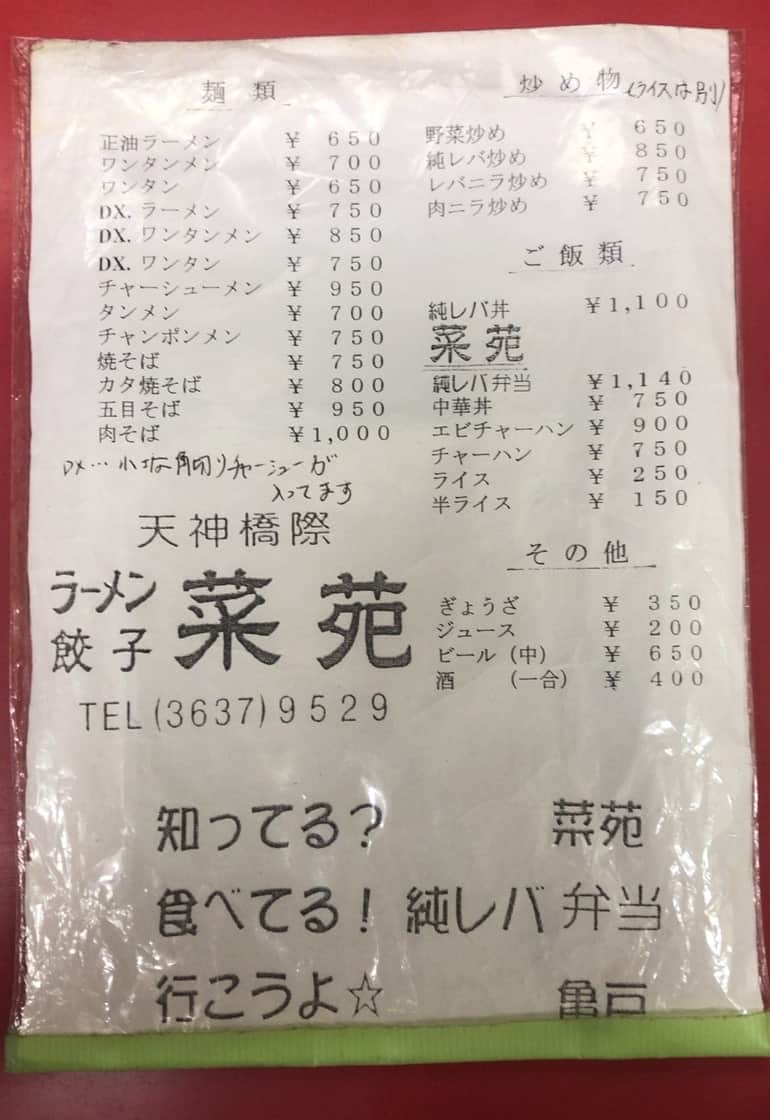 麺類
正油ラーメン ￥ 650
ワンタンメン ￥ 700
ワンタン ￥ 650
DX. ラーメン ￥ 750
DX. ワンタンメン ￥ 850
DX. ワンタン ￥ 750
チャーシューメン ￥ 950
タンメン ￥ 700
チャンポンメン ￥ 750
焼そば ￥ 750
カタ焼そば ￥ 800
五目そば ￥ 950
肉そば ￥1,000
DX…小さな角切りチャーシューが
入ってます
天神橋際
ラーメン
餃子 菜苑
TEL(3637)9529
炒め物(ライスは別)
野菜炒め ￥ 650
純レバ炒め ￥ 850
レバニラ炒め ￥ 750
肉ニラ炒め ￥ 750
ご飯類
純レバ丼 ￥1,100
菜苑
純レバ弁当 ￥1,140
中華丼 ￥ 750
エビチャーハン ￥ 900
チャーハン ￥ 750
ライス ￥ 250
半ライス ￥ 150
その他
ぎょうざ ￥ 350
ジュース ￥ 200
ビール (中) ￥ 650
酒 (一合) ￥ 400
知ってる? 菜苑
食べてる! 純レバ弁当
行こうよ☆ 亀戸